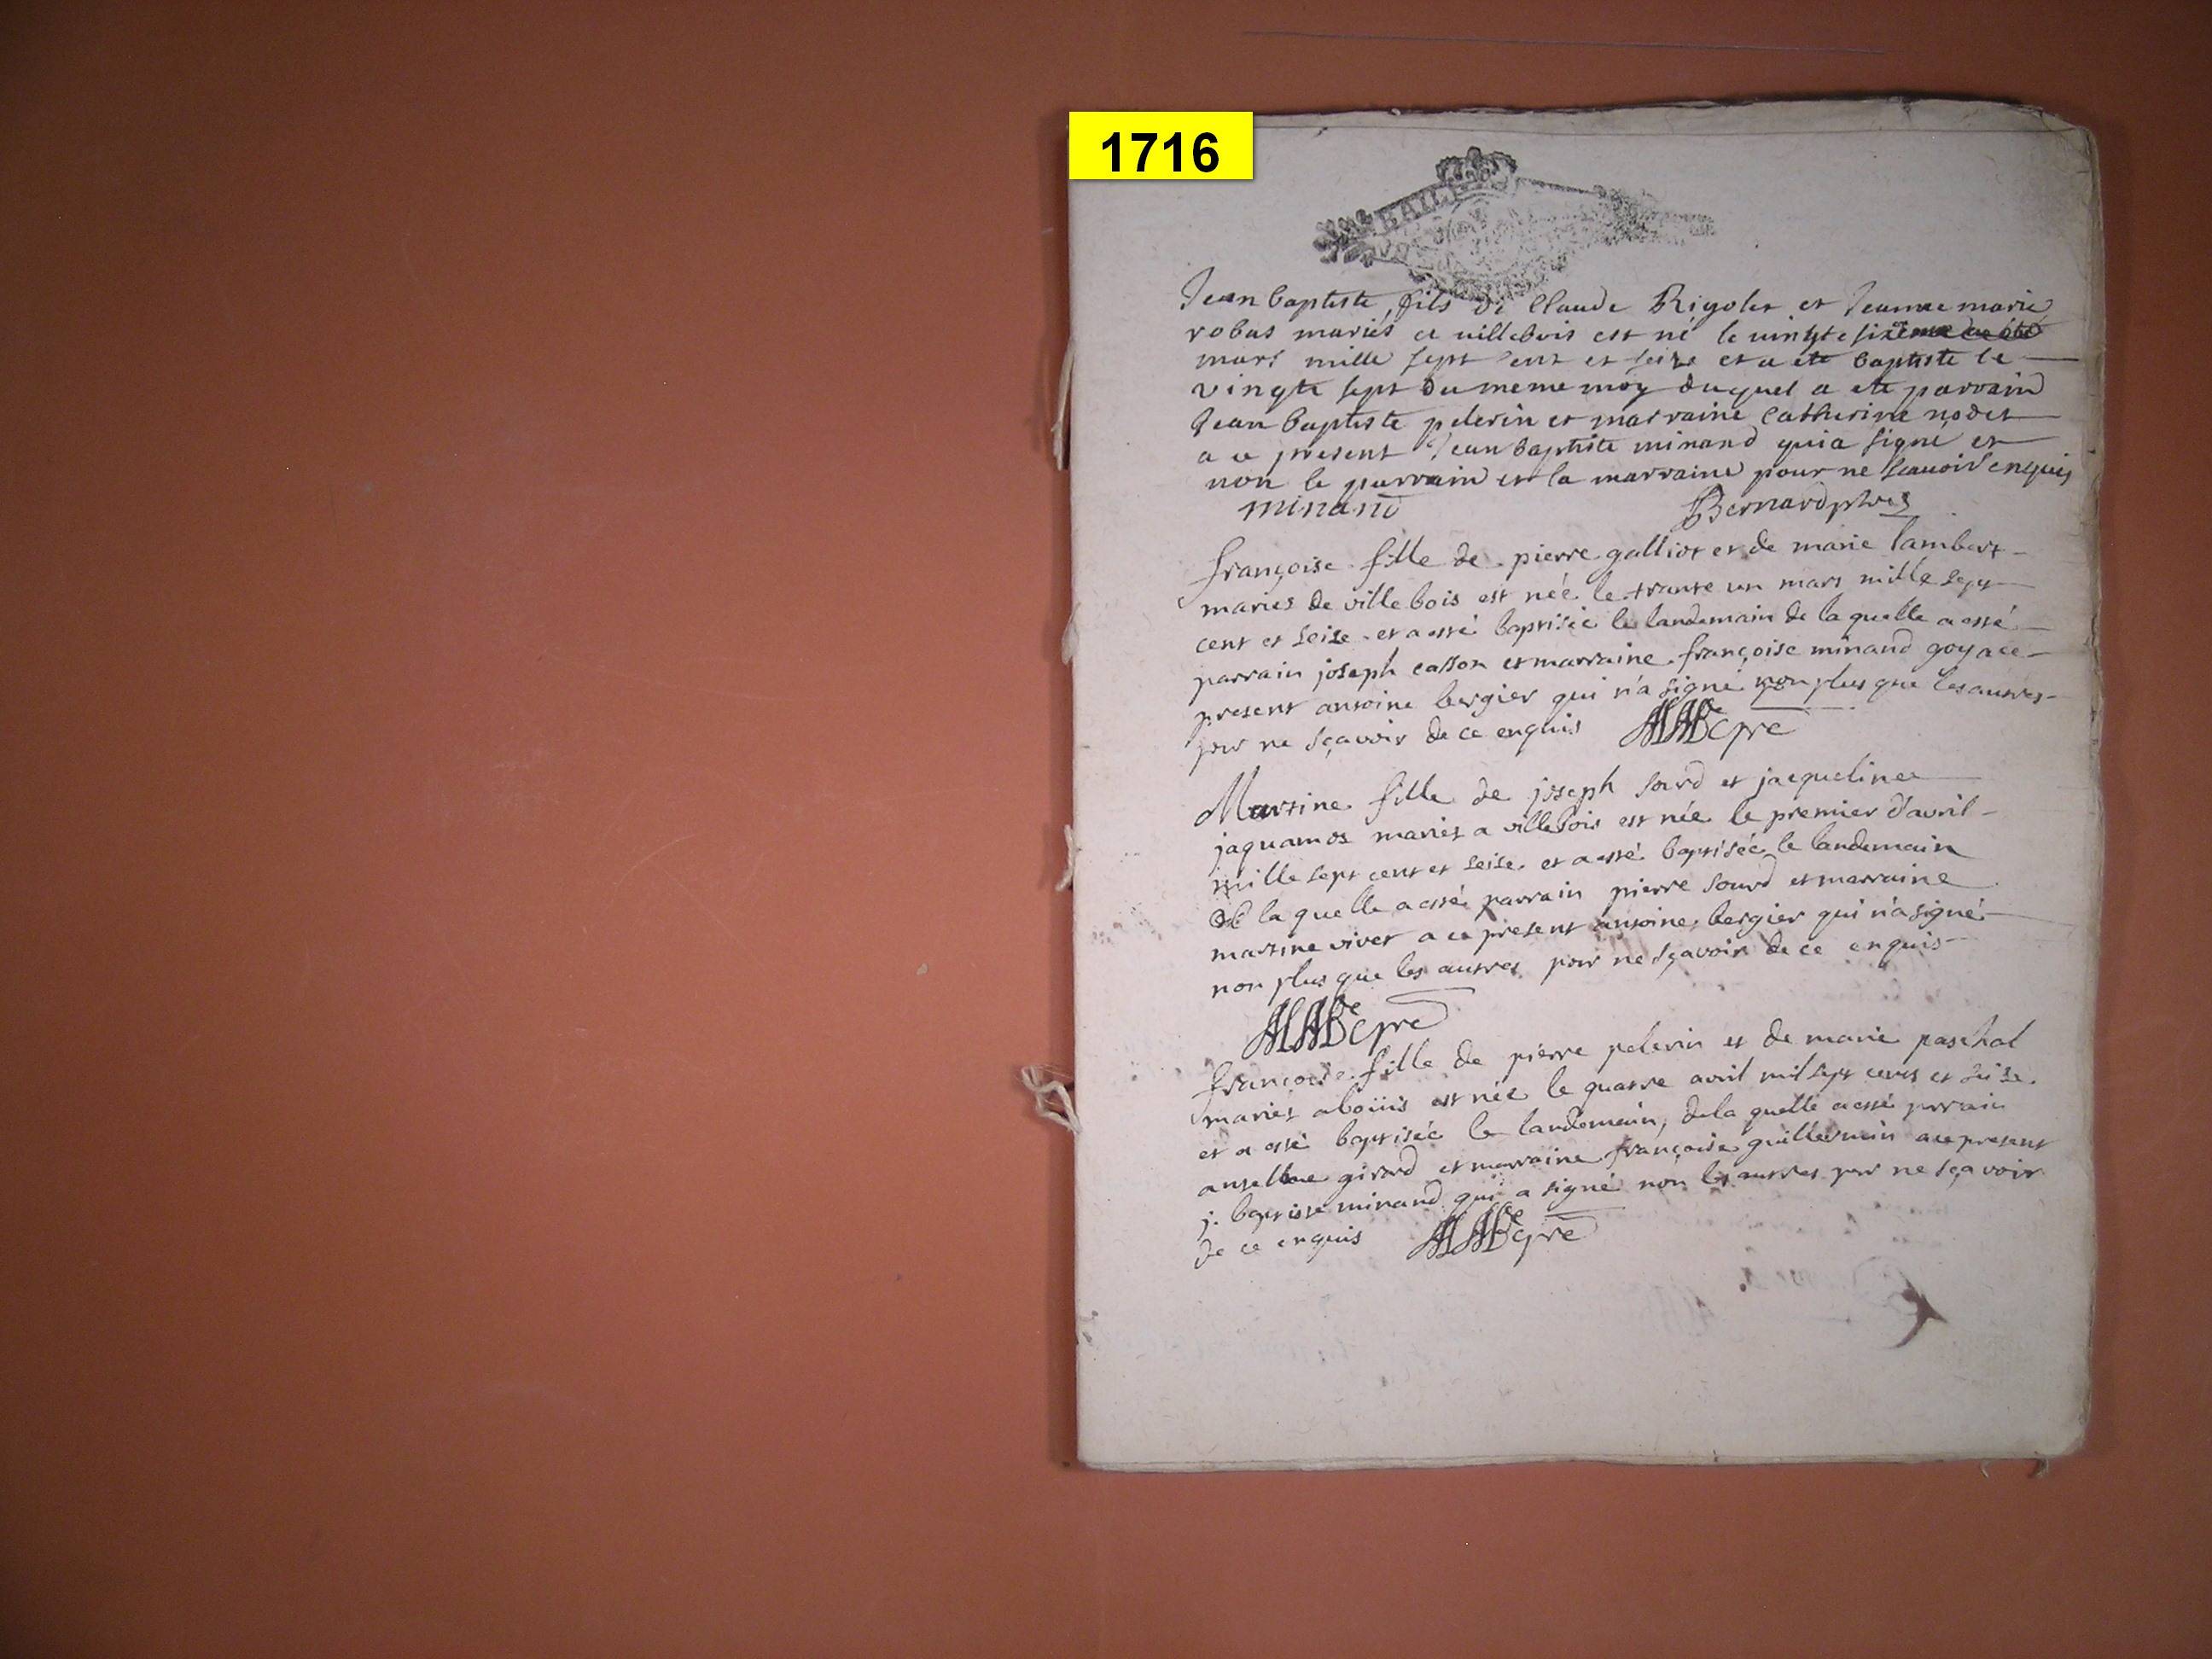 1716
BAILL
Jean baptiste, fils de Claude Rigolet et Jeanne marie
robas mariés a villebois est né le vingte sixieme
mars mille sept cent et seize et a ete baptiste le
vingte sept du meme moy duquel a ete parrain
Jean baptiste pelerin et marraine Catherine nodet
a ce present Jean baptiste minand qui a signé et
non le parrain et la marraine pour ne scauoir enquis
minand Bernard ptre
françoise fille de pierre galliot et de marie lambert
mariés de villebois est née le trante un mars mille sept
cent et seise et a esté baptisée le landemain de la quelle a esté
parrain joseph casson et marraine françoise minand goy a ce
present antoine bergier qui n'a signé non plus que les autres
pour ne sçavoir de ce enquis
Martine fille de joseph sourd et jacqueline
jaquamos mariés a villebois est née le premier d'avril
mille sept cent et seise et a esté baptisée le landemain
de la quelle a esté parrain pierre sourd et marraine
martine vivet a ce present antoine bergier qui n'a signé
non plus que les autres pour ne sçavoir de ce enquis
françoise fille de pierre pelerin et de marie paschal
mariés a boüis est née le quatre avril mil sept cents et seise
et a esté baptisée le landemain, de la quelle a esté parrain
anselme girard et marraine françoise guillermin a ce present
j. baptiste minand qui a signé non les autres pour ne sçavoir
de ce enquis